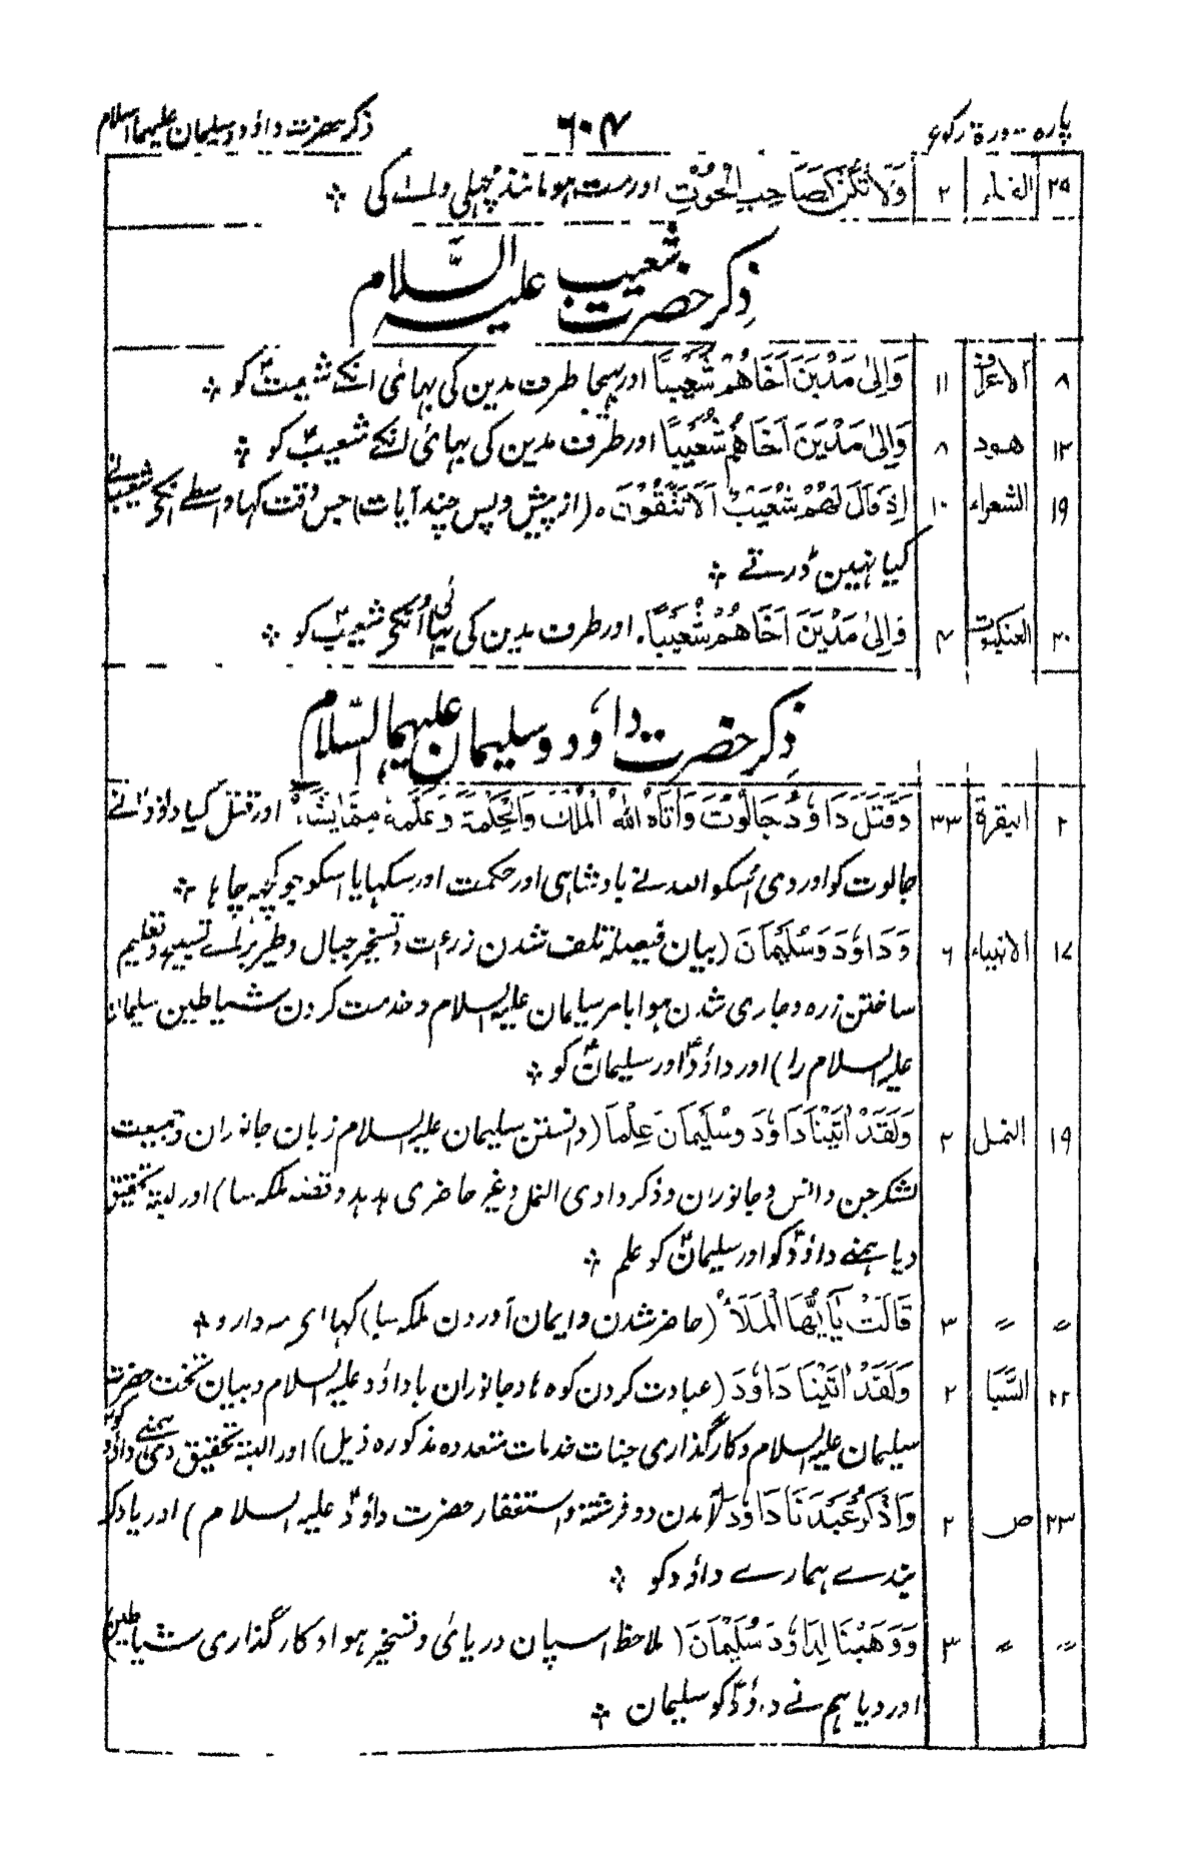 پارہ سورۃ رکوع ۶۰۴ ذکر حضرت داؤد و سلیمان علیہما السلام
۲۹ القلم ۲ وَلَا تَكُنْ كَصَاحِبِ الْحُوْتِ اور مت ہو مانند مچھلی والے کی ؞
ذِکر حضرت شعیب علیہ السَّلام
۸ الاعراف ۱۱ وَاِلٰى مَدْيَنَ اَخَاهُمْ شُعَيْبًا اور بھیجا طرف مدین کی بہائی انکے شعیبؑ کو ؞
۱۲ ھود ۸ وَاِلٰى مَدْيَنَ اَخَاهُمْ شُعَيْبًا اور طرف مدین کی بہائی انکے شعیبؑ کو ؞
۱۹ الشعراء ۱۰ اِذْ قَالَ لَهُمْ شُعَيْبٌ اَلَا تَتَّقُوْنَ ۰ (از پیش و پس چند آیات) جس وقت کہا واسطے انکے شعیبؑ نے
کیا نہین ڈرتے ؞
۲۰ العنکبوت ۴ وَاِلٰى مَدْيَنَ اَخَاهُمْ شُعَيْبًا ۰ اور طرف مدین کی بہائی اونکے شعیبؑ کو ؞
ذِکر حضرت داؤد و سلیمان علیہما السّلام
۲ البقرۃ ۳۳ وَقَتَلَ دَاوٗدُ جَالُوْتَ وَاٰتَاهُ اللّٰهُ الْمُلْكَ وَالْحِكْمَةَ وَعَلَّمَهٗ مِمَّا يَشَآءُ اور قتل کیا داؤد نے
جالوت کو اور دی اسکو اللہ نے بادشاہی اور حکمت اور سکہایا اسکو جو کچہ چاہا ؞
۱۷ الانبیاء ۶ وَدَاوٗدَ وَسُلَيْمَانَ (بیان فیصلہ تلف شدن زرعت و تسخیر جبال و طیر برائے تسبیح و تعلیم
ساختن زرہ و جاری شدن ہوا بامر سلیمان علیہ السلام و خدمت کردن شیاطین سلیمان
علیہ السلام را) اور داؤدؑ اور سلیمانؑ کو ؞
۱۹ النمل ۲ وَلَقَدْ اٰتَيْنَا دَاوٗدَ وَسُلَيْمَانَ عِلْمًا (دانستن سلیمان علیہ السلام زبان جانوران و جمعیت
لشکر جن و انس و جانوران و ذکر وادی النمل و غیر حاضری ہدہد و قصہ ملکہ سبا) اور البتہ تحقیق
دیا ہمنے داؤدؑ کو اور سلیمانؑ کو علم ؞
〃 〃 ۳ قَالَتْ يٰٓاَيُّهَا الْمَلَاُ (حاضر شدن و ایمان آوردن ملکہ سبا) کہا اے سردارو ؞
۲۲ السَّبا ۲ وَلَقَدْ اٰتَيْنَا دَاوٗدَ (عبادت کردن کوہ ہا و جانوران با داؤد علیہ السلام و بیان تخت حضرت
سلیمان علیہ السلام و کارگذاری جنات خدمات متعددہ مذکورہ ذیل) اور البتہ تحقیق دی ہمنے داؤد کو
۲۳ ص ۲ وَاذْكُرْ عَبْدَنَا دَاوٗدَ (آمدن دو فرشتہ و استغفار حضرت داؤدؑ علیہ السلام) اور یاد کر
بندے ہمارے داؤد کو ؞
〃 〃 ۳ وَوَهَبْنَا لِدَاوٗدَ سُلَيْمَانَ (ملاحظہ اسپان دریائی و تسخیر ہوا و کارگذاری شیاطین)
اور دیا ہم نے داؤدؑ کو سلیمان ؞